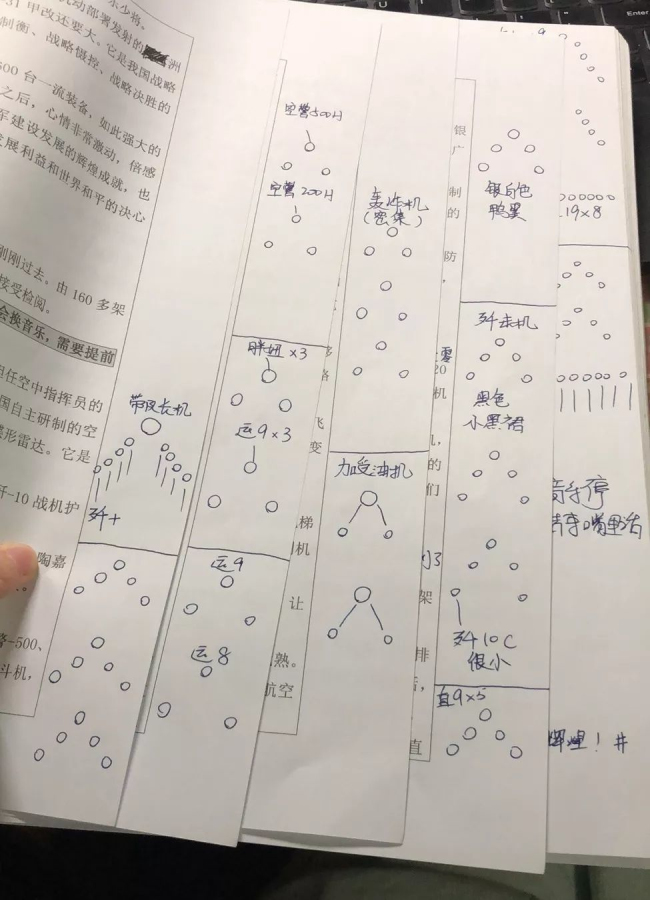 甲改还要大。它是我国战略
制衡、战略慑控、战略决胜的
500 台一流装备，如此强大的
之后，心情非常激动，倍感
军建设发展的辉煌成就，也
发展利益和世界和平的决心
刚刚过去。由 160 多架
接受检阅。
会换音乐，需要提前
担任空中指挥员的
国自主研制的空
碟形雷达。它是
歼-10 战机护
陶嘉
警-500、
斗机，
带队长机
歼十
空警500H
空警200H
胖妞 x3
运9 x3
运9
运8
梯
机
让
熟。
航空
轰炸机
（密集）
加受油机
飞
变
银
广
制
的
防
零
20
机
机，
的
们
架
排
直
银白色
鸭翼
歼击机
黑色
小黑裙
歼10C
很小
直9x5
19x8
音乐停